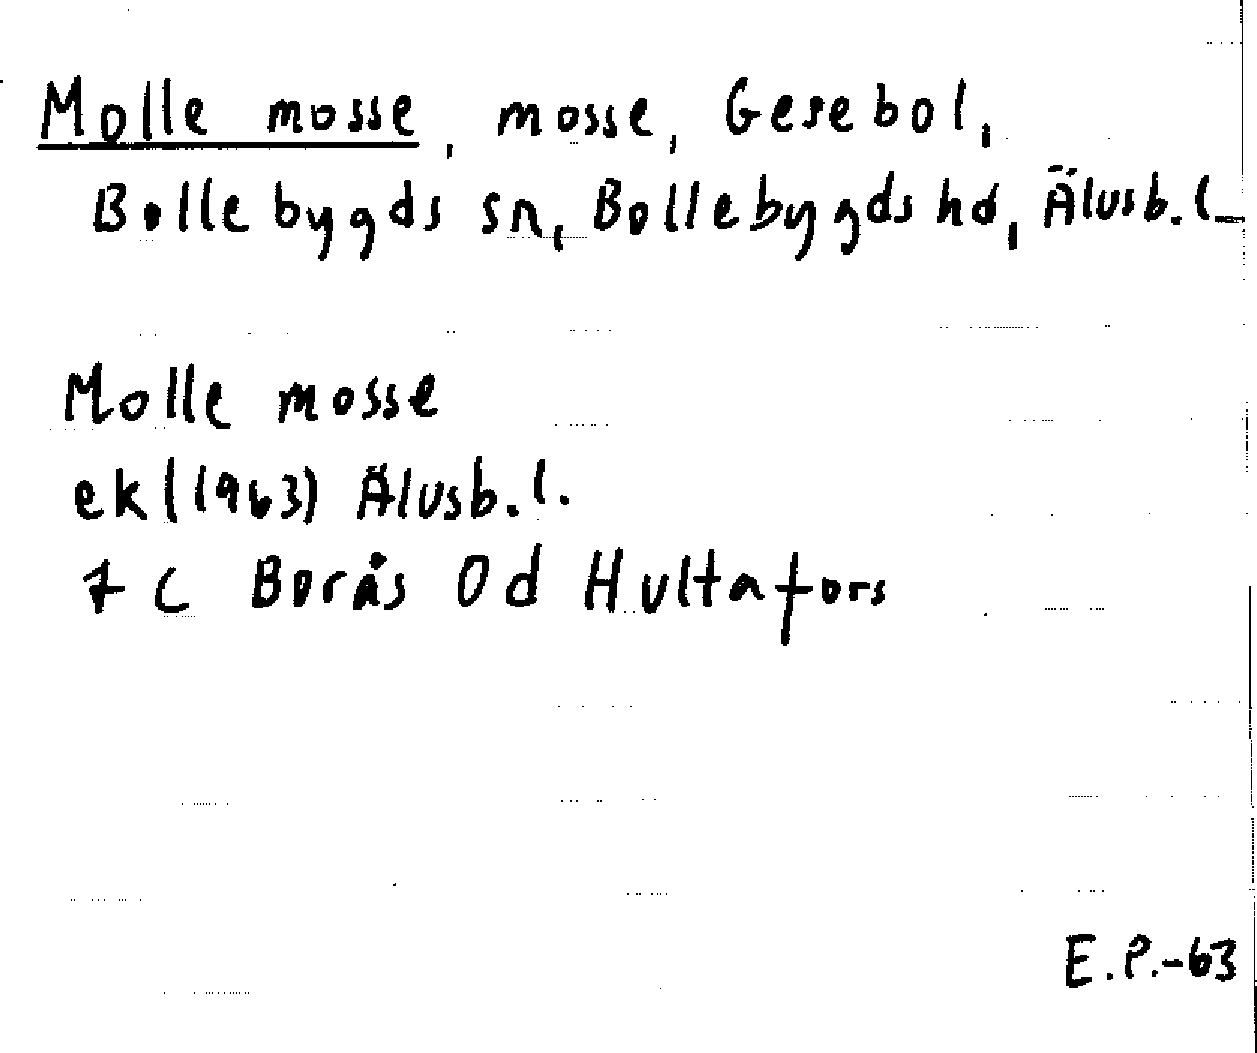 Molle mosse, mosse, Gesebol,
Bollebygds sn, Bollebygds hd, Älvsb. l.
Molle mosse
ek (1963) Älvsb. l.
7 C Borås 0d Hultafors
E.P.-63